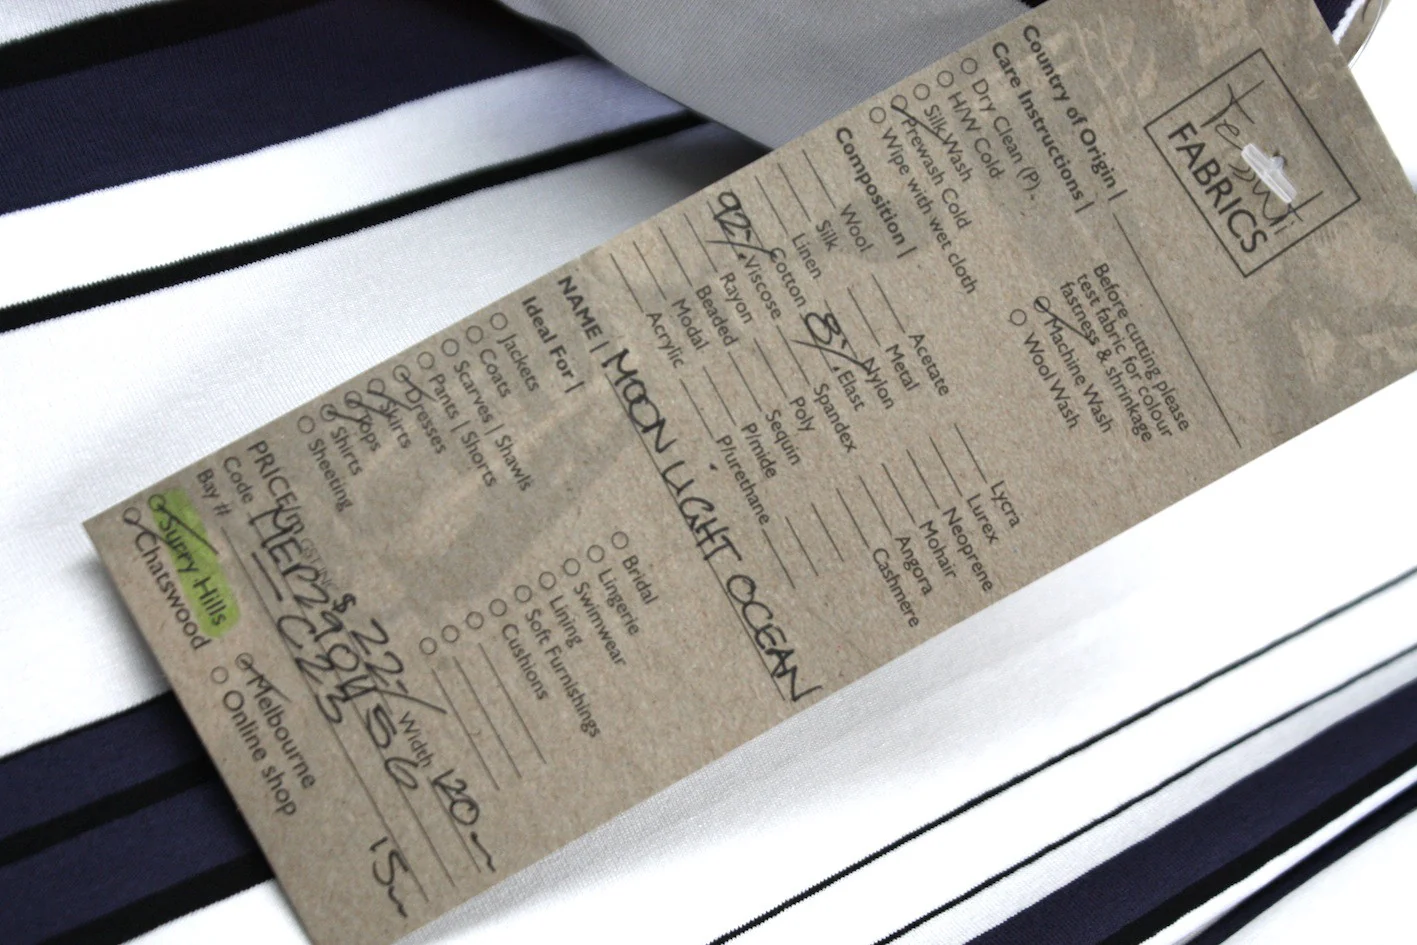 Tessuti
FABRICS
Country of Origin |
Care Instructions |
Dry Clean (P).
H/W Cold
Silk Wash
Prewash Cold
Wipe with wet cloth
Before cutting please
test fabric for colour
fastness & shrinkage
Machine Wash
Wool Wash
Composition |
Wool
Silk
Linen
Cotton
92% Viscose
Rayon
Beaded
Modal
Acrylic
Acetate
Metal
Nylon
8% Elast
Spandex
Poly
Sequin
P/mide
P/urethane
Lycra
Lurex
Neoprene
Mohair
Angora
Cashmere
NAME | MOON LIGHT OCEAN
Ideal For |
Jackets
Coats
Scarves | Shawls
Pants | Shorts
Dresses
Skirts
Tops
Shirts
Sheeting
Bridal
Lingerie
Swimwear
Lining
Soft Furnishings
Cushions
PRICE $ 22-/ Width 120
Code
Bay # C23 15
Surry Hills
Chatswood
Melbourne
Online shop